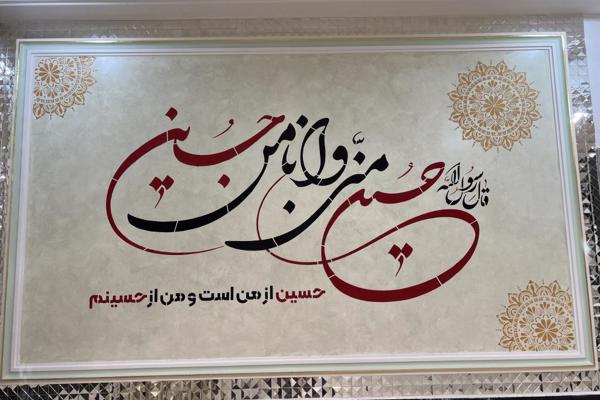 قال رسول الله
حسین منّی و انا من حسین
حسین از من است و من از حسینم